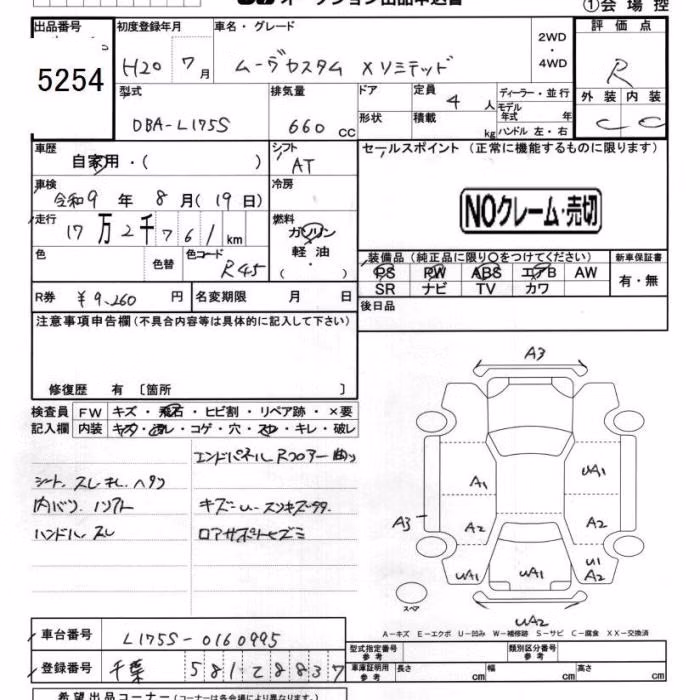 オークション出品申込書
①会場控
出品番号
5254
初度登録年月
H20 7月
車名・グレード
ムーヴカスタム Xリミテッド
2WD・4WD
評価点
R
外装 内装
C C
型式
DBA-L175S
排気量
660 cc
ドア
形状
定員
4人
積載
kg
ディーラー・並行
モデル年式 年
ハンドル 左・右
車歴
自家用・( )
シフト
AT
セールスポイント (正常に機能するものに限ります)
NOクレーム・売切
車検
令和9年8月(19日)
冷房
走行
17万2千761km
燃料
ガソリン
軽油
( )
色
色替
色コード
R45
装備品 (純正品に限り○をつけてください)
PS PW ABS エアB AW
SR ナビ TV カワ
新車保証書
有・無
R券 ¥9,260円
名変期限 月 日
後日品
注意事項申告欄 (不具合内容等は具体的に記入して下さい)
修復歴 有 [箇所 ]
検査員記入欄
FW キズ・飛石・ヒビ割・リペア跡・×要
内装 キズ・汚レ・コゲ・穴・スレ・キレ・破レ
エンドパネル Rフロアー曲り
シート、スレ キレ ヘタリ
内バリ、ハンドル スレ
ロアサポートヒズミ
A3
A1
UA1
A3
A2
A2
UA1
UA1
U1
A2
スペア
UA2
A-キズ E-エクボ U-凹み W-補修跡 S-サビ C-腐食 XX-交換済
車台番号
L175S-0160995
登録番号
千葉 581 2 8837
型式指定番号 参考
類別区分番号 参考
車庫証明用 参考 長さ cm 幅 cm 高さ cm
希望出品コーナー (コーナーは各会場により異なります。)